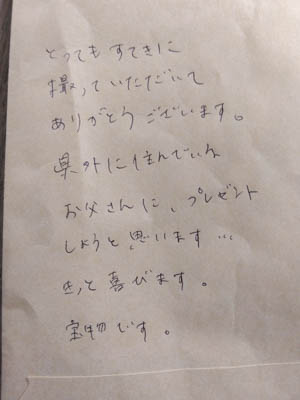 とってもすてきに
撮っていただいて
ありがとうございます。
県外に住んでいる
お父さんに、プレゼント
しようと思います…
きっと喜びます。
宝物です。